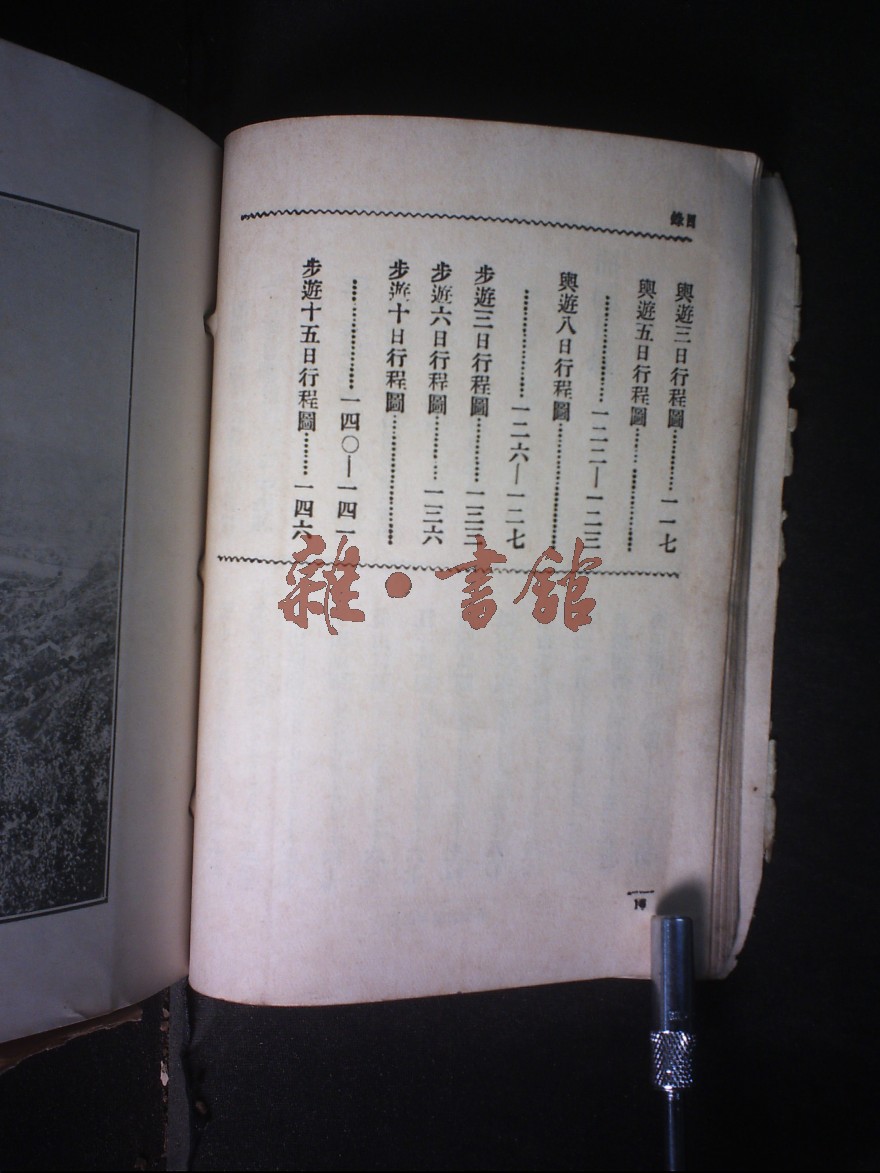 目錄
輿遊三日行程圖…………一一七
輿遊五日行程圖…………
…………一二二—一二三
輿遊八日行程圖…………
…………一二六—一二七
步遊三日行程圖…………一三三
步遊六日行程圖…………一三六
步遊十日行程圖…………
…………一四〇—一四一
步遊十五日行程圖………一四六
雜·書館